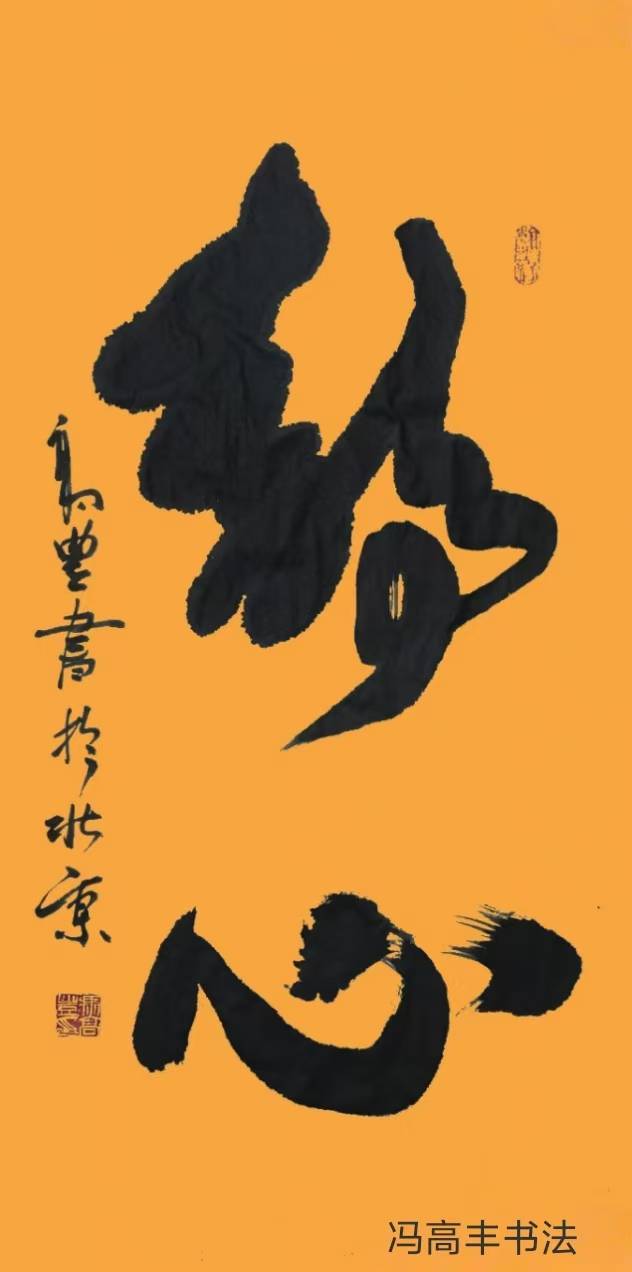 静心
高豐書於北京
冯高丰书法